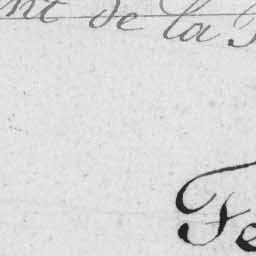 nt de la
Fe